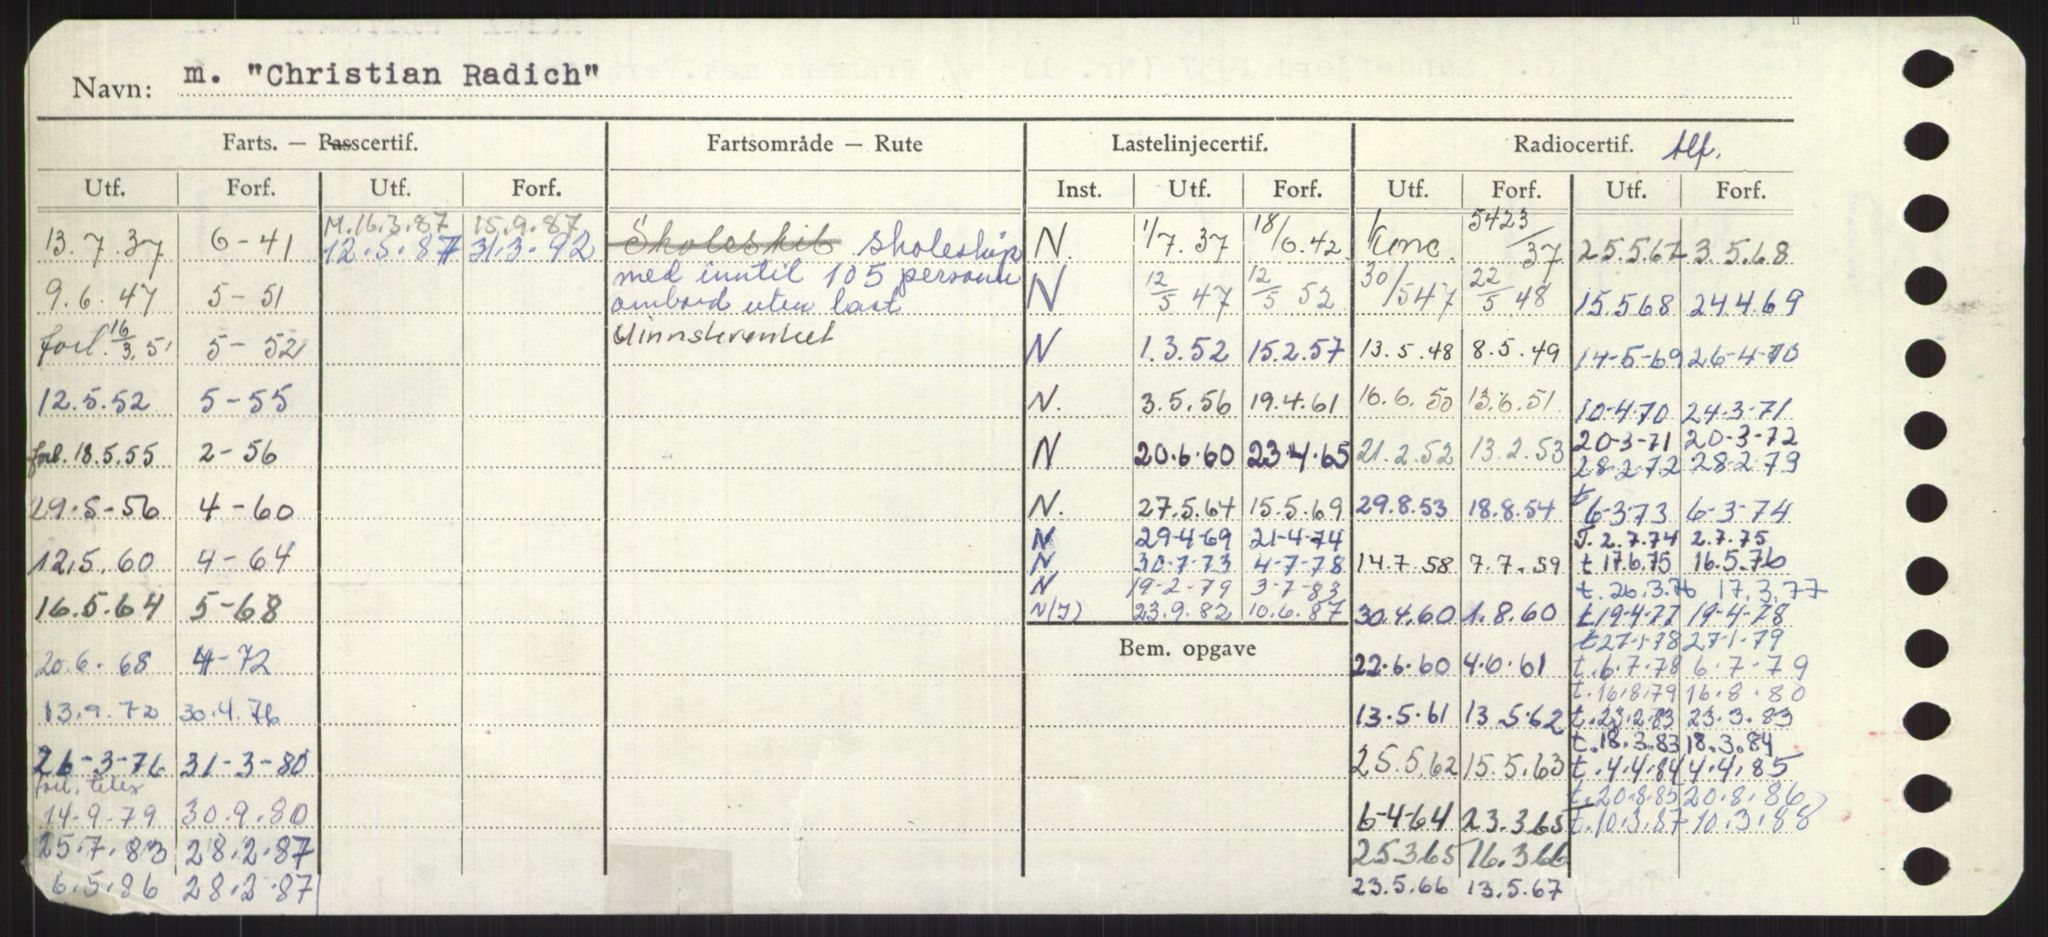 Navn: m. "Christian Radich"
Farts. — Passcertif. Fartsområde — Rute Lastelinjecertif. Radiocertif. tlf.
Utf. Forf. Utf. Forf. Inst. Utf. Forf. Utf. Forf. Utf. Forf.
M. 16.3.87 15.9.87
13.7.37 6-41 12.5.87 31.3.92
9.6.47 5-51
forl. 16/3.51 5-52
12.5.52 5-55
forl. 18.5.55 2-56
29.5-56 4-60
12.5.60 4-64
16.5.64 5-68
20.6.68 4-72
13.9.72 30.4.76
26-3-76 31-3-80
forl. telex
14-9-79 30.9.80
25.7.83 28.2.87
6.5.86 28.2.87
Skoleskib skoleskip
med inntil 105 personer
ombord uten last
Uinnskrenket
N. 1/7.37 18/6.42
N 12/5 47 12/5 52
N 1.3.52 15.2.57
N. 3.5.56 19.4.61
N 20.6.60 23.4.65
N. 27.5.64 15.5.69
N 29-4-69 21-4-74
N 30-7-73 4-7-78
N 19-2-79 3-7-83
N(I) 23.9.82 10.6.87
Bem. opgave
5423/37
30/5 47 22/5 48
13.5.48 8.5.49
16.6.50 13.6.51
21.2.52 13.2.53
29.8.53 18.8.54
14.7.58 7.7.59
30.4.60 1.8.60
22.6.60 4.6.61
13.5.61 13.5.62
25.5.62 15.5.63
6-4-64 23.3.65
25.3.65 16.3.66
23.5.66 13.5.67
25.5.67 3.5.68
15.5.68 24.4.69
14-5-69 26-4-70
10-4-70 24-3-71
20-3-71 20-3-72
28-2-72 28-2-79
t 6-3-73 6-3-74
T. 2.7.74 2.7.75
t 17.6.75 16.5.76
t. 26.3.76 17.3.77
t 19-4-77 19-4-78
t 27-1-78 27-1-79
t. 6-7-78 6-7-79
t. 16.8.79 16.8.80
t. 23.2.83 23.3.83
t. 18.3.83 18.3.84
t. 4.4.84 4.4.85
t. 20.8.85 20.8.86
T. 10.3.87 10.3.88